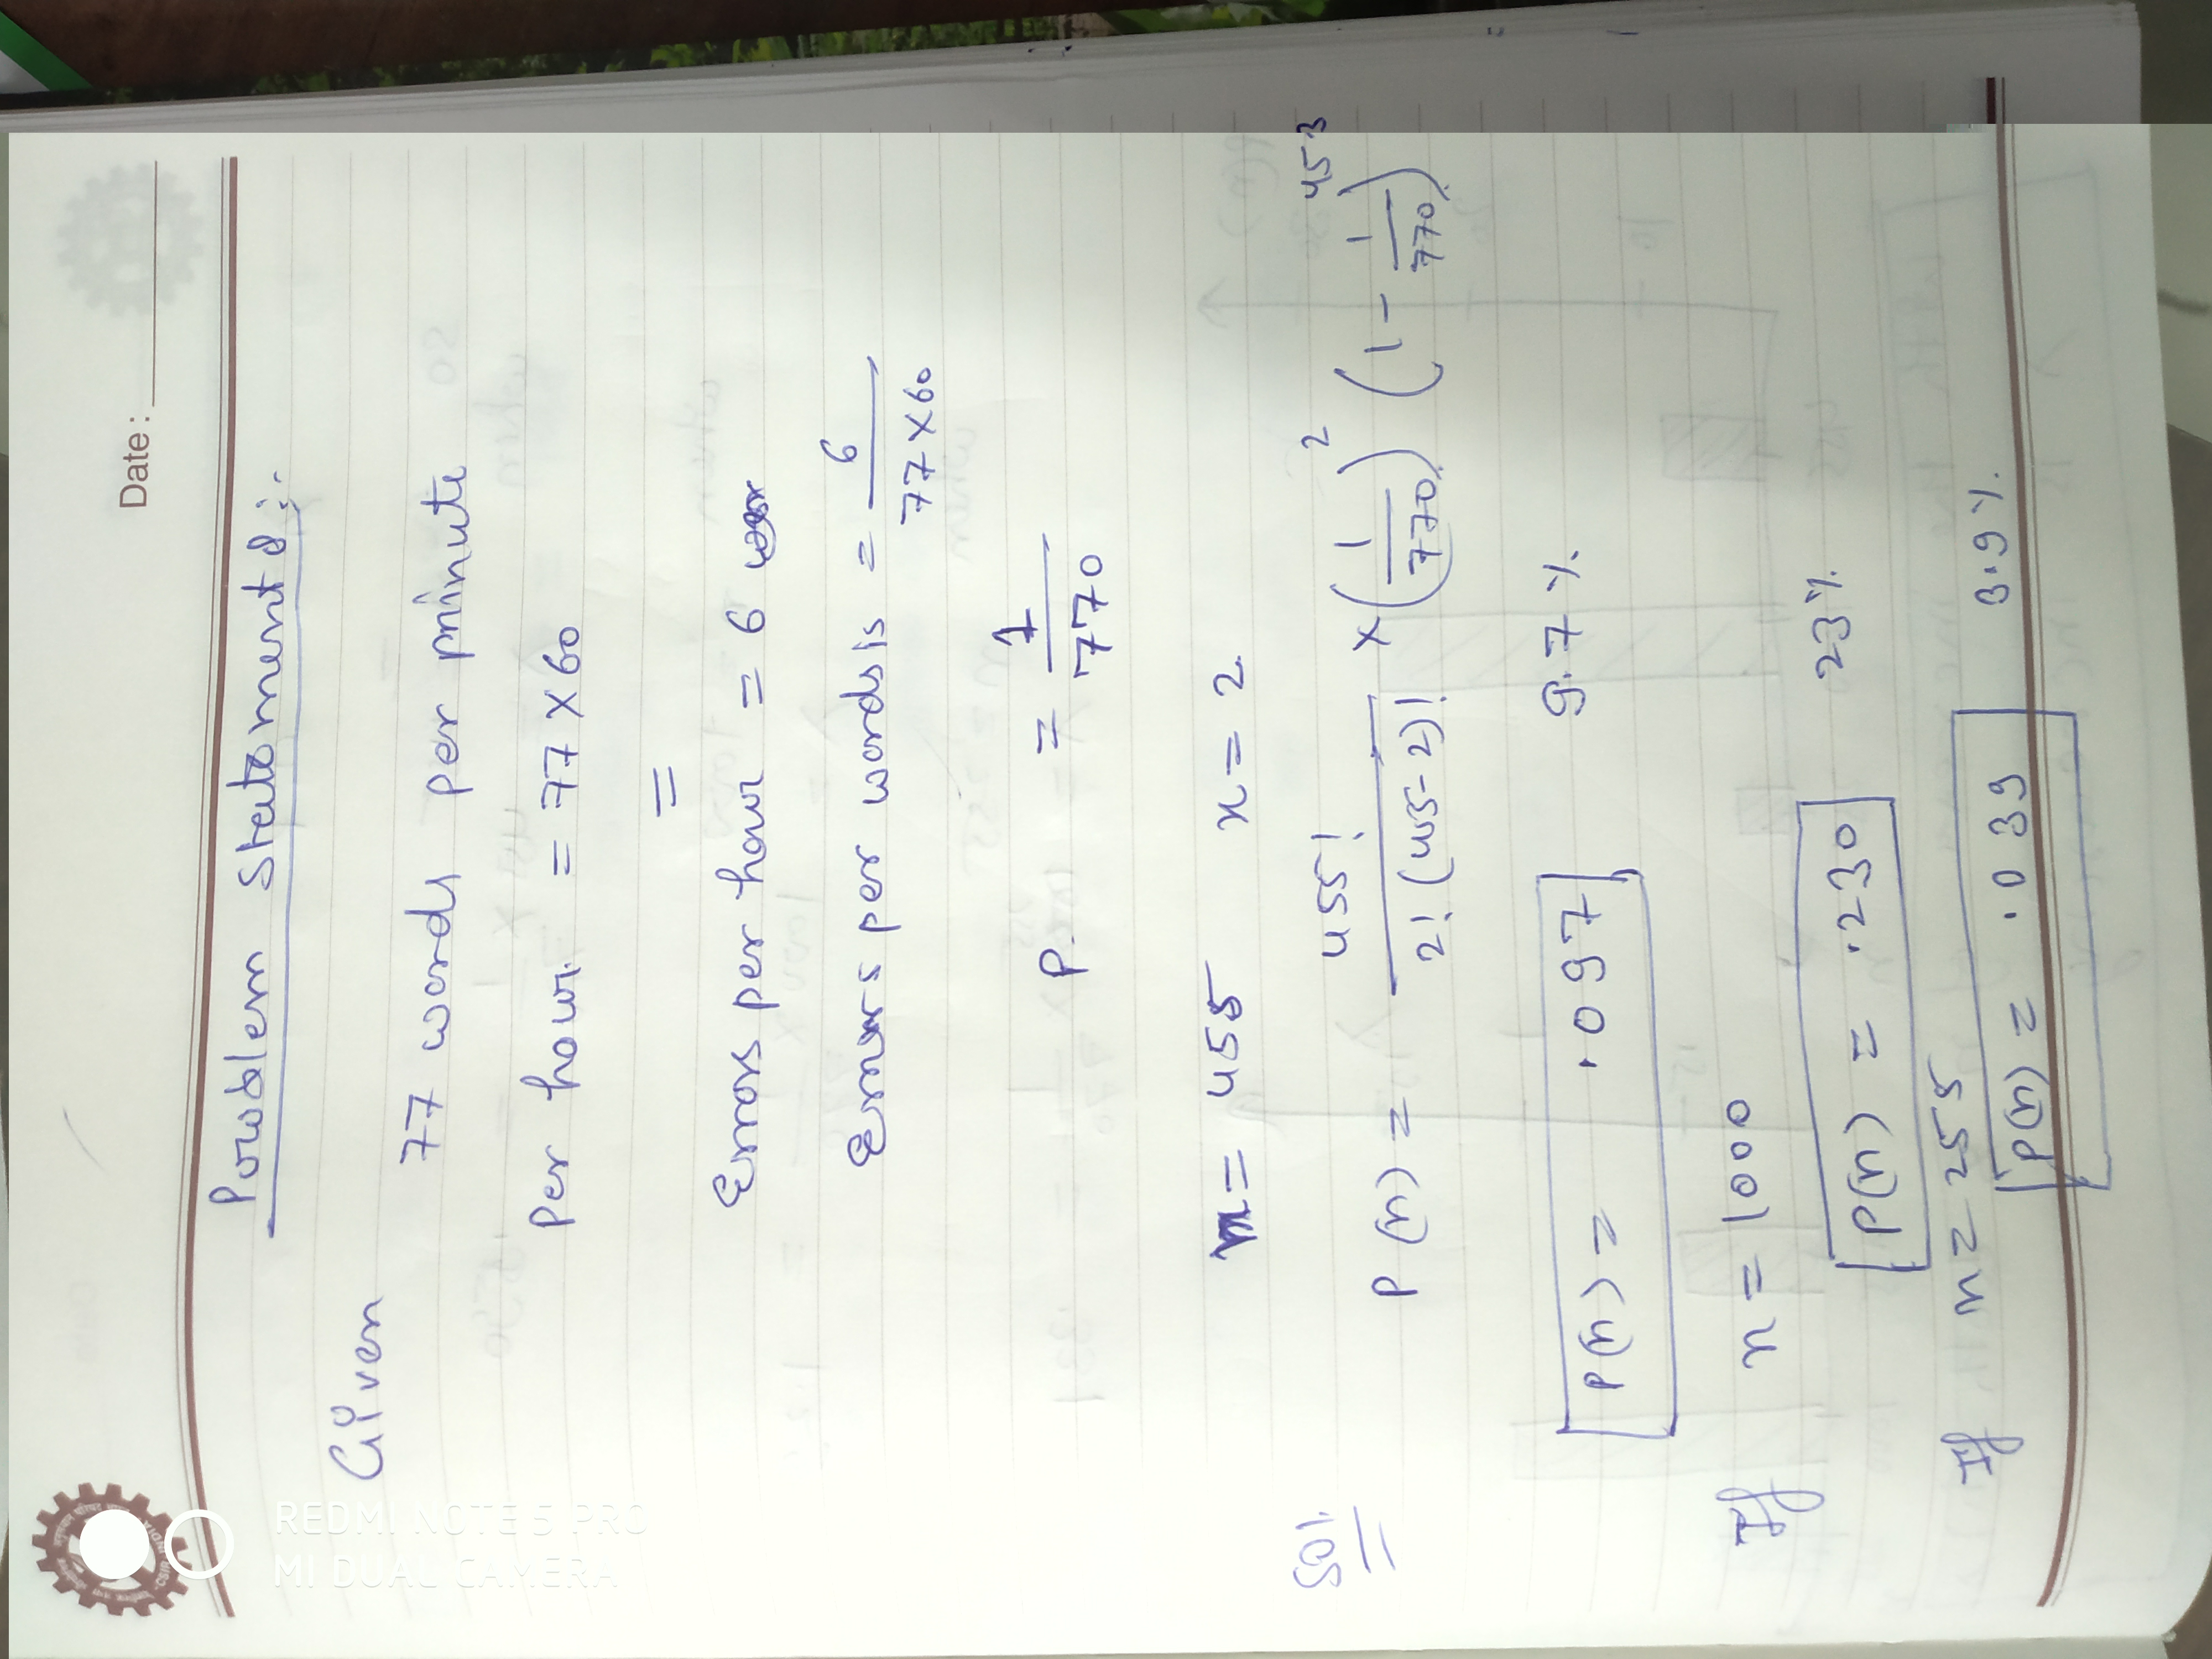 Date :
Problem Statement 8 :-
Given
77 words per minute
Per hour = 77 x 60
=
Errors per hour = 6
Errors per words is = 6 / 77 x 60
P. = 1 / 770
n = 455 x = 2
Sol.
P(n) = 455! / 2! (455-2)! x (1/770)^2 (1 - 1/770)^453
P(n) = .097 9.7 %
If n = 1000
P(n) = .230 23 %
If n = 255
P(n) = .039 3.9 %
REDMI NOTE 5 PRO
MI DUAL CAMERA